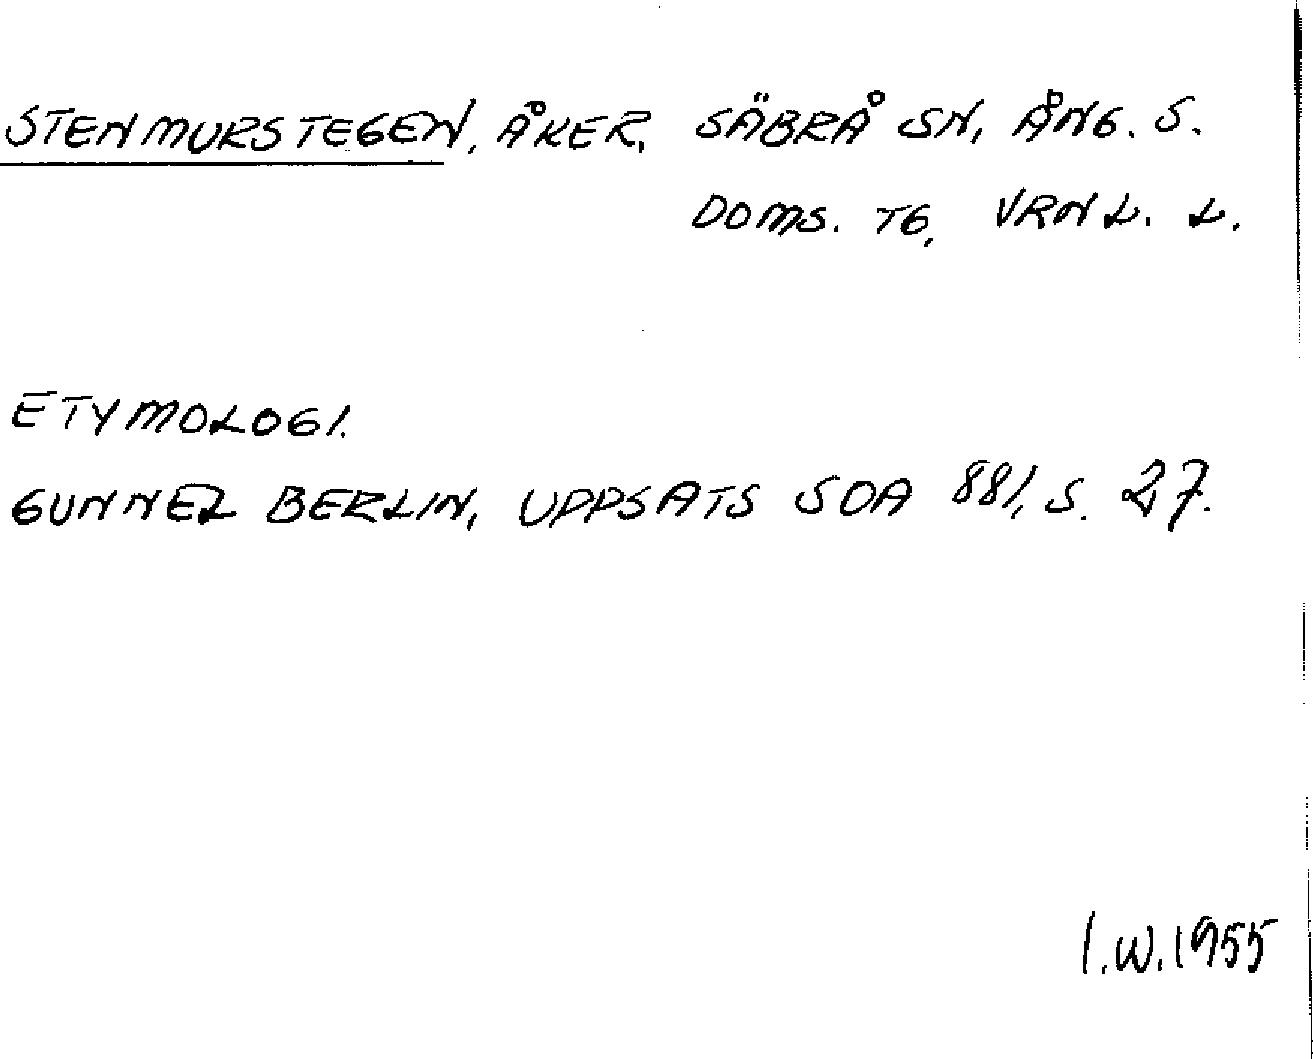 STENMURSTEGEN, ÅKER, SÄBRÅ SN, ÅNG. S.
DOMS. TG, VRNL. L.
ETYMOLOGI.
GUNNEL BERLIN, UPPSATS SOA 881, S. 27.
I.W. 1955